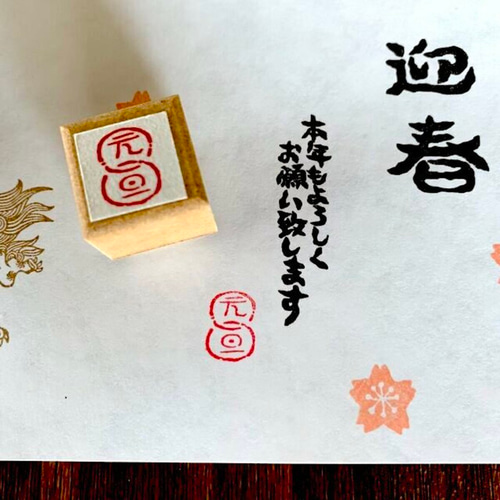 迎春
本年もよろしく
お願い致します
元旦
元旦